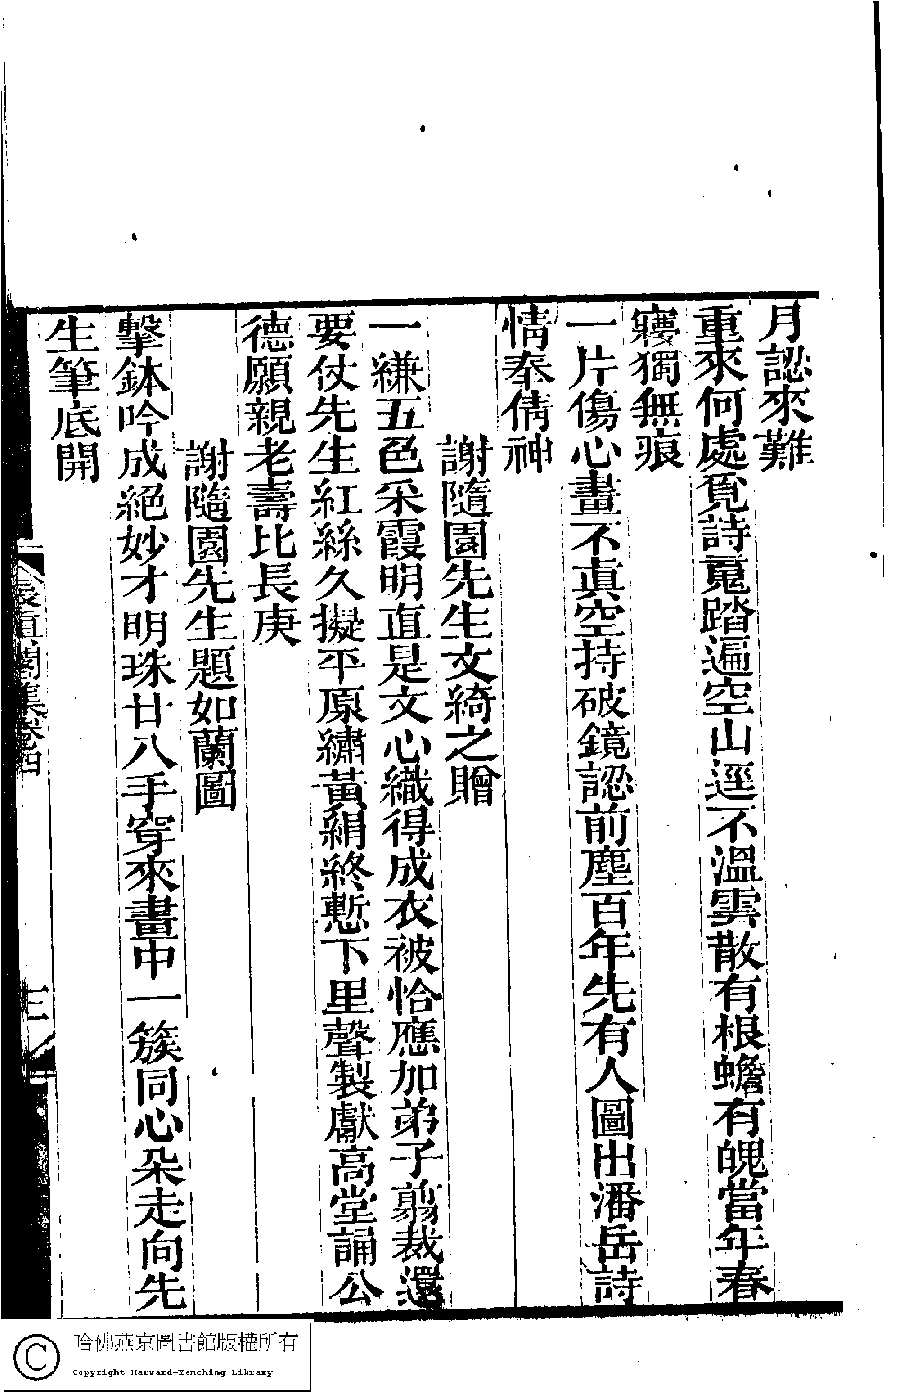 月認來難
重來何處覔詩䰟踏遍空山逕不溫雲散有根蟾有魄當年春
寢獨無痕
一片傷心畫不眞空持破鏡認前塵百年先有人圖出潘岳詩
情奉倩神
謝隨園先生文綺之贈
一縑五色采霞明直是文心織得成衣被恰應加弟子翦裁還
要仗先生紅絲久擬平原繡黃絹終慙下里聲製獻高堂誦公
德願親老壽比長庚
謝隨園先生題如蘭圖
擊鉢吟成絕妙才明珠廿八手穿來畫中一簇同心朶走向先
生筆底開
長眞閣集卷四
三
哈佛燕京圖書館版權所有
Copyright Harvard-Yenching Library